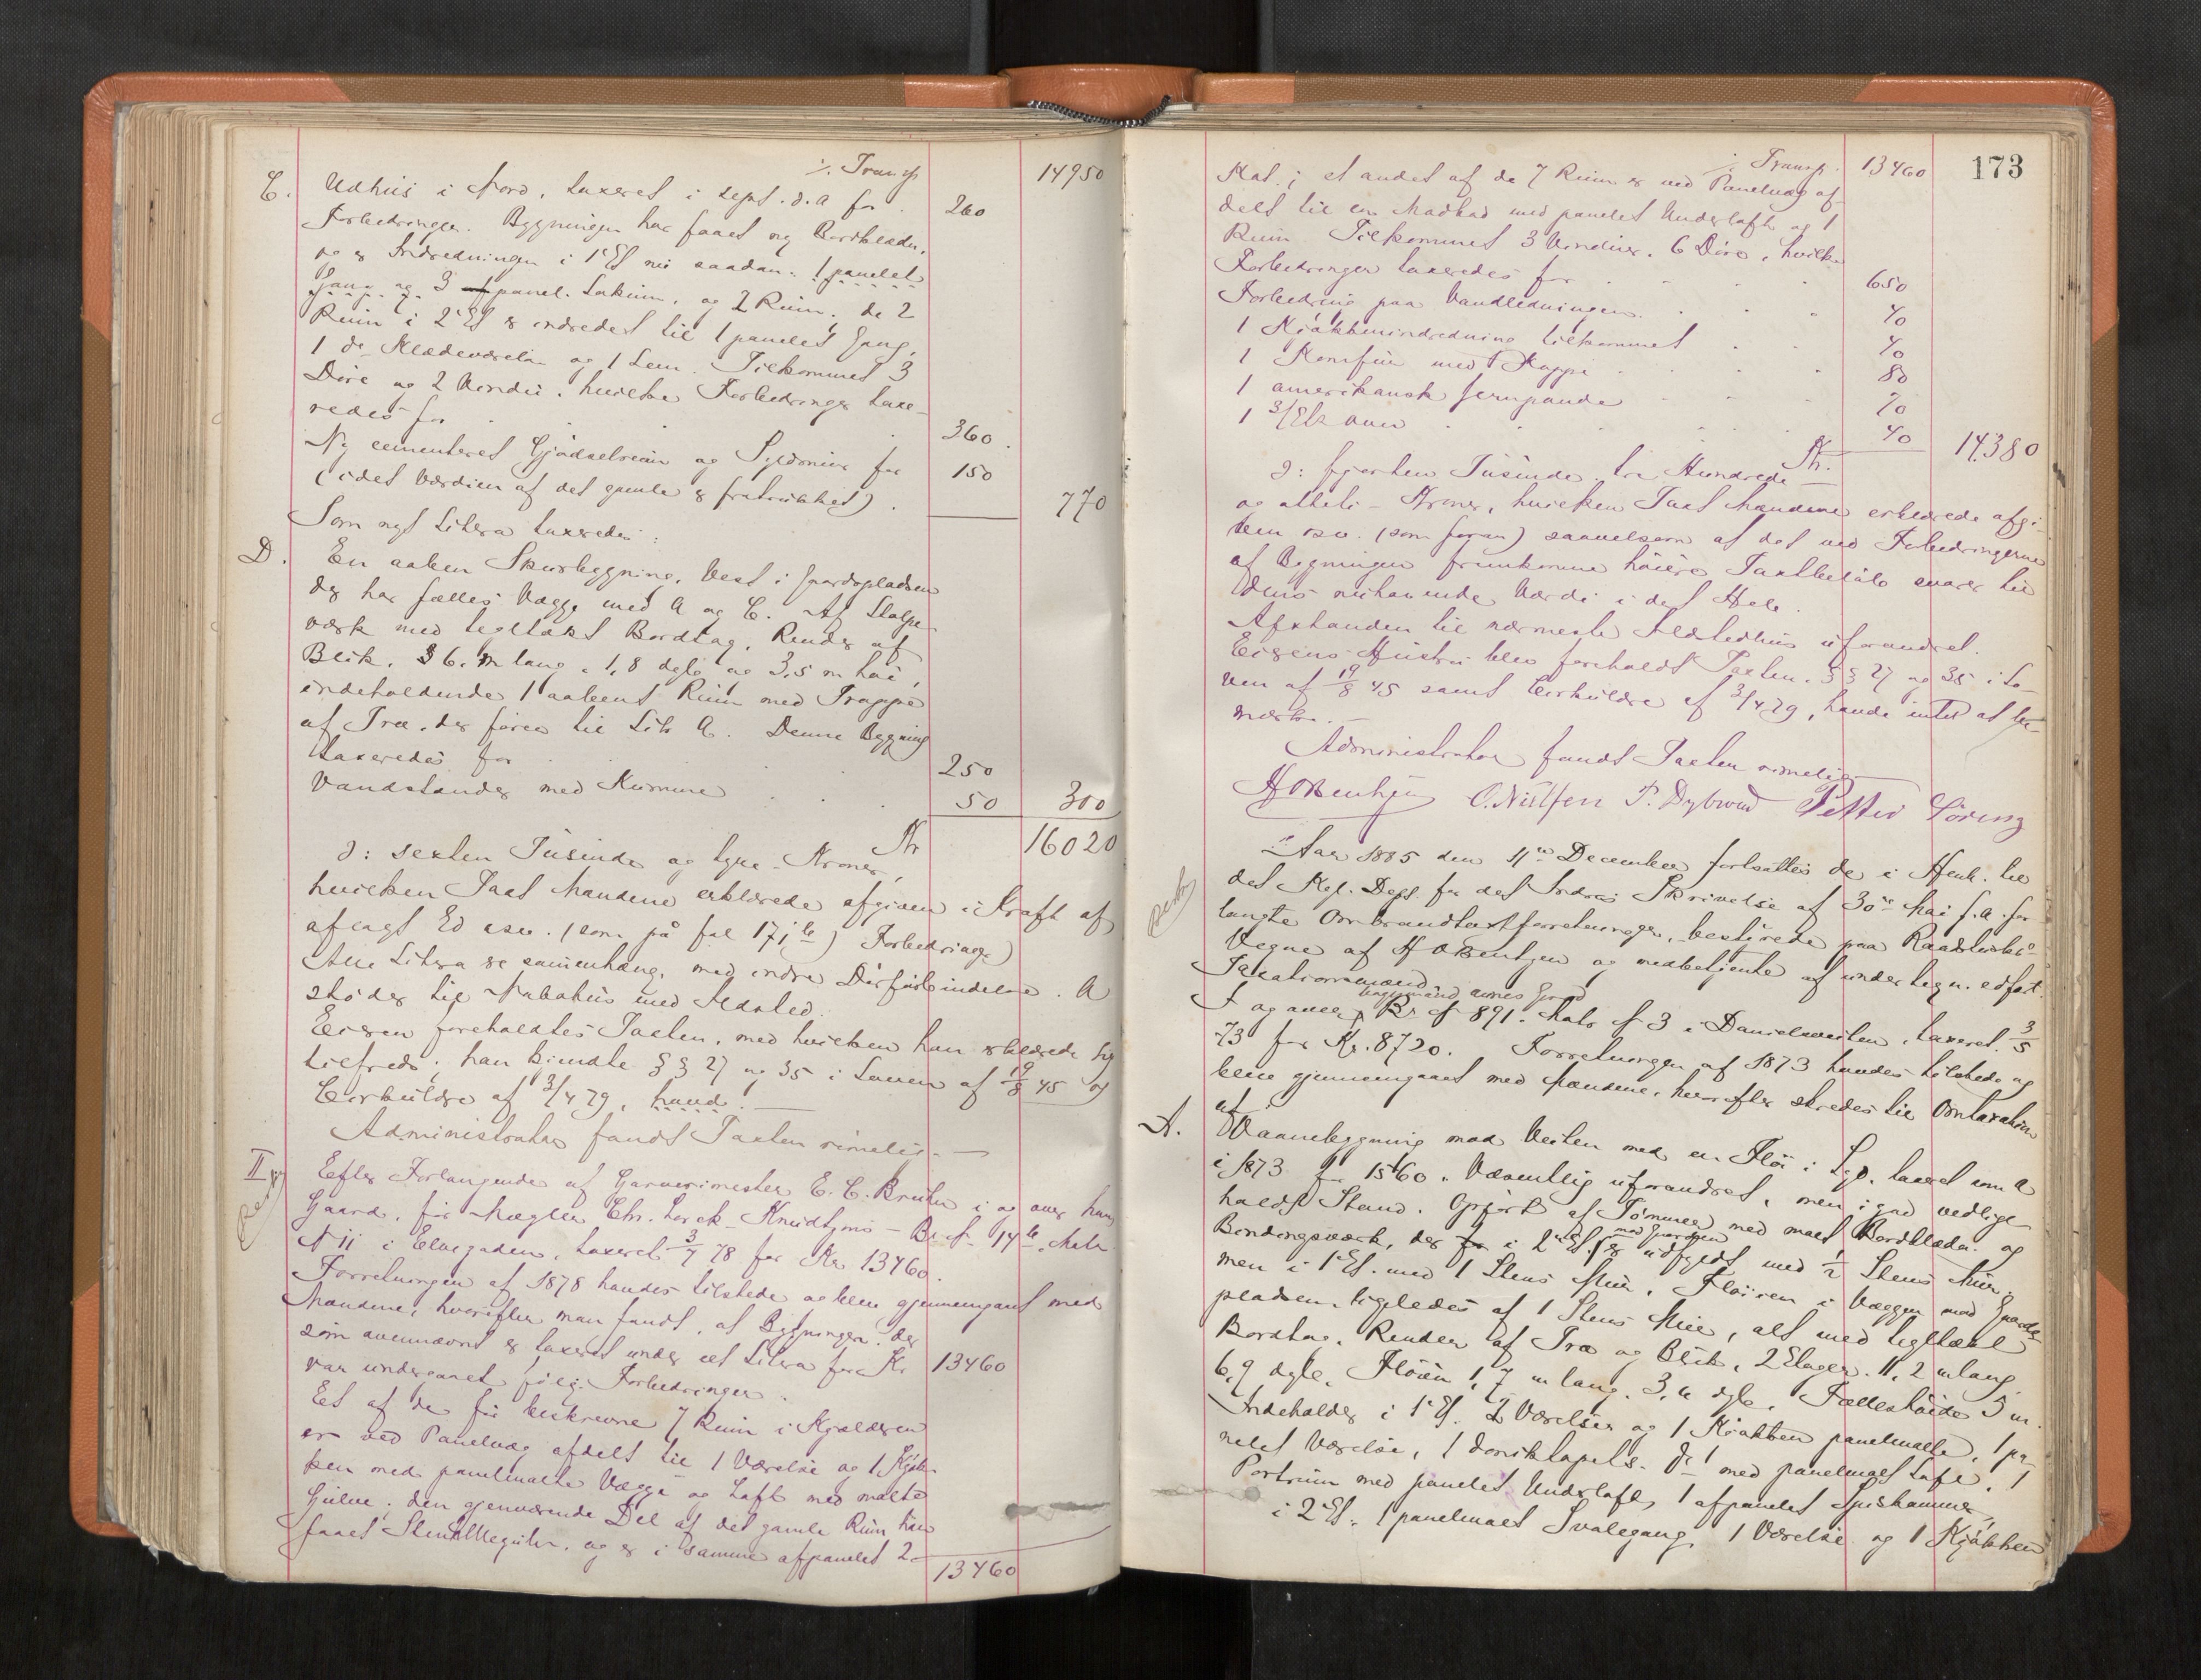 ./. Transp 14950
C. Udhus i Nord, taxeret i sept. d. A for 260
Forbedringer. Bygningen har faaet ny Bordklædn.
og er Indredningen i 1 Et nu saadan: 1 panelet
Gang og 3 panel. Lokum, og 2 Rum; de 2
Rum i 2 Et er indredet til 1 panelet Gang,
1 do Klædeværelse og 1 Lem. Tilkommet 3
Döre og 2 Vinduer, hvilke Forbedringer taxe-
redes for 360.
Ny cementeret Gjödselrum og for 150
(idet Værdien af det gamle er fratrukket). 770
Som nyt Litera taxeredes:
D. En aaben Skurbygning, Vest i Gaardspladsen
der har fælles Vægge med A og C. Af Stolpe-
værk med tegltækt Bordtag, Render af
Blik, 6. m lang, 1,8 dyb og 3,5 m höi,
indeholdende 1 aabent Rum med Trappe
af Træ, der förer til Litr A. Denne Bygning
taxeredes for 250
Vandstander med Kumme 50 300
Kr 16020
ɔ: sexten Tusinde og tyve Kroner,
hvilken Taxt Mændene erklærede afgiven i Kraft af
aflagt Ed osv. (som på fol 171 b) Forbedringer)
Alle Litera er sammenhæng. med indre Dörforbindelse. A
stöder til Nabohus med Ildsted.
Eieren foreholdtes Taxten, med hvilken han erklærede sig
tilfreds; han kjendte §§ 27 og 35 i Loven af 19/8 45 og
Cirkulære af 3/4 79,
Administrator fandt Taxten rimelig. —
II Efter Forlangende af Garvermester E. C. Bruhn i og over hans
Gaard, för Mægler Chr. Lorck Knudtzons — Br. N 14 b, Matr.
N 11 i Elvegaden, taxeret 3/7 78 for Kr 13460.
Forretningen af 1878 havdes tilstede og blev gjennemgaaet med
Mændene, hvorefter man fandt, at Bygningen, der
som ovennævnt er taxeret under et Litera for Kr 13460
var undergaaet fölg. Forbedringer.
Et af de för beskrevne 7 Rum i Kjælderen
er ved Panelvæg afdelt til 1 Værelse og 1 Kjök-
ken med panelmalte Vægge og Loft med malte
Gulve; den gjenværende Del af det gamle Rum har
faaet Stenhellegulv, og er i samme afpanelet 2
13460
./. Transp. 13460 173
Mat. i et andet af de 7 Rum er ved Panelvæg af-
delt til en Madbod med panelet Underloft og 1
Rum Tilkommet 3 Vinduer, 6 Döre, hvilke
Forbedringer taxeredes for 650
Forbedring paa Vandledningen 40
1 Kjökkenindredning tilkommet 40
1 Komfur med Kappe 80
1 amerikansk Jernpande 70
1 3/Etr Ovn 40 14,380
Kr.
ɔ: fjorten Tusinde, tre Hundrede
og otteti Kroner, hvilken Taxt Mændene erklærede afgi-
ven osv. (som foran) saavelsom at det ved Forbedringerne
af Bygningen fremkomne höiere Taxtbelöb svarer til
dens nuhavende Værdi i det Hele.
Afstanden til nærmeste Ildstedhus uforandret.
Eierens Hustru blev foreholdt Taxten, §§ 27 og 35 i Lo-
ven af 19/8 45 samt Cirkulære af 3/4 79, havde intet at be-
mærke. —
Administrator fandt Taxten rimelig —
O. Nielsen P. Dybvad Petter Söreng
Aar 1885 den 11te December fortsattes de i Henh. til
det Kgl. Dept. for det Indres Skrivelse af 30te Mai f. A. for-
langte Ombrandtaxtforretninger, bestyrede paa Raadstuens
Vegne af H O Bentzen og medbetjente af undertegn. edfæst.
Taxationsmænd
I og over Br. N 891. Matr N 3 i Danielsveiten, taxeret 3/5
73 for Kr. 8720. Forretningen af 1873 havdes tilstede og
blev gjennemgaaet med Mændene, hvorefter skredes til Omtaxation
af
A. Vaanebygning mod Veiten med en Flöi i , taxeret som A
i 1873 for 1560. Væsentlig uforandret, men i god vedlige-
holdt Stand. Opfört af Tömmer med malt Bordklædn. og
Bindingsværk, der i 2 Et mod Gaarden er udfyldt med 1/2 Stens Mur,
men i 1 Et. med 1 Stens Mur, Flöien i Væggen mod Gaards-
pladsen ligeledes af 1 Stens Mur, alt med tegltækt
Bordtag. Render af Træ og Blik, 2 Etager. 11,2 m lang,
6,9 dyb, Flöien 1,7 m lang, 3,6 dyb, Fælleshöide 5 m.
Indeholder i 1 Et. 2 Værelser og 1 Kjökken panelmalte, 1 pa-
nelet Værelse, 1 do med panelmalt Loft, 1
Portrum med panelet Underloft, 1 afpanelet Spiskammer,
i 2 Et. 1 panelmalt Svalegang, 1 Værelse og 1 Kjökken